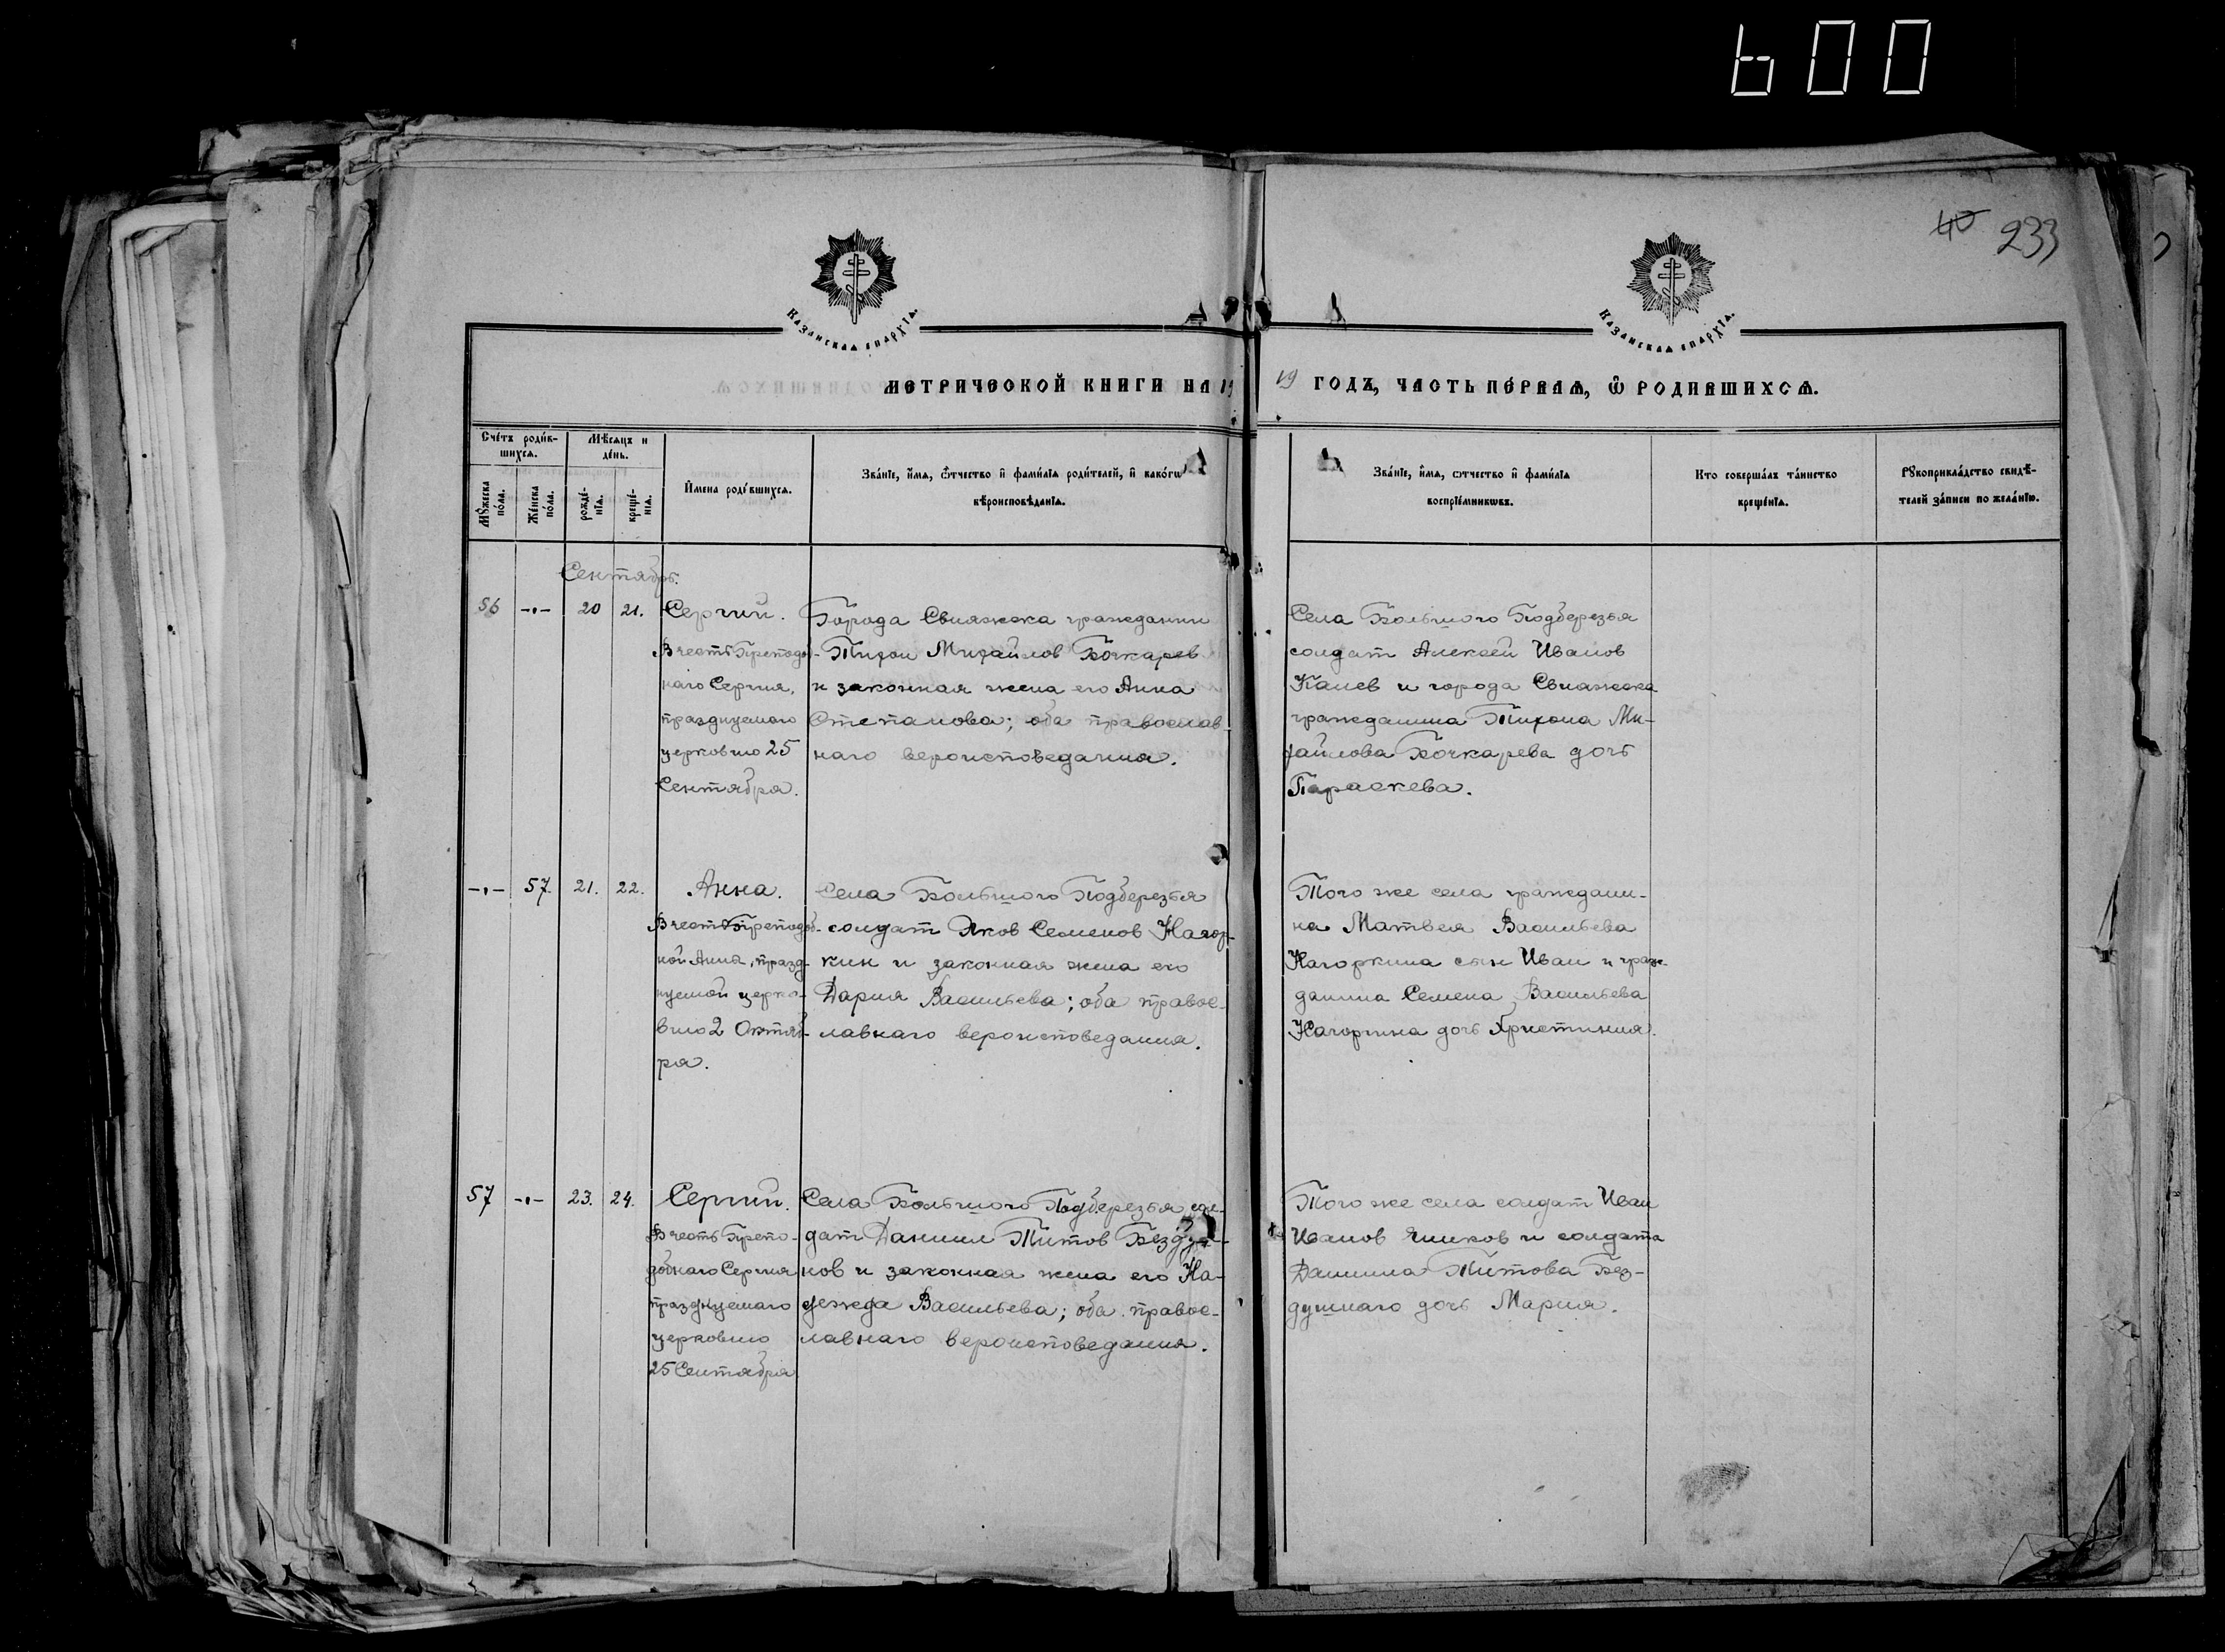 600
40 233
Казанская епархїя.
Казанская епархїя.
МЕТРИЧЕСКОЙ КНИГИ НА 19
19 ГОДЪ, ЧАСТЬ ПЕ́РВАЯ, Ѿ РОДИВШИХСЯ.
Сче́тъ роди́в-
шихся.
Мѣсяцъ и
де́нь.
Мꙋ́жеска
по́ла.
Же́нска
по́ла.
рожде́-
нїя.
креще́-
нїя.
И҆мена роди́вшихся.
Зва́нїе, и҆́мя, ѻ҆́тчество и҆ фами́лїя роди́телей, и҆ како́гѡ
вѣроисповѣ́данїя.
Зва́нїе, и҆́мя, ѻтчество и҆ фами́лїя
воспрїе́мникѡвъ.
Кто соверша́лъ та́инство
креще́нїя.
Рꙋкоприкла́дство свидѣ́-
телей за́писи по жела́нїю.
Сентябрь.
56 -„- 20 21. Сергий.
В честь Преподоб-
наго Сергия,
празднуемаго
церковию 25
Сентября.
Города Свияжска гражданин
Тихон Михайлов Бочкарев
и законная жена его Анна
Степанова; оба православ-
наго вероисповедания.
Села Большого Подберезья
солдат Алексей Иванов
Калев и города Свияжска
гражданина Тихона Ми-
хайлова Бочкарева дочь
Параскева.
-„- 57. 21. 22. Анна.
В честь Преподоб-
ной Анны, празд-
нуемой церко-
вию 2 Октяб-
ря.
Села Большого Подберезья
солдат Яков Семенов Нагор-
кин и законная жена его
Дария Васильева; оба правос-
лавнаго вероисповедания.
Того же села граждани-
на Матвея Васильева
Нагоркина сын Иван и граж-
данина Семена Васильева
Нагоркина дочь Христиния.
57 -„- 23. 24. Сергий.
В честь Препо-
добнаго Сергия
празднуемаго
церковию
25 Сентября
Села Большого Подберезья сол-
дат Даниил Титов Безду-
нов и законная жена его На-
дежда Васильева; оба правос-
лавнаго вероисповедания.
Того же села солдат Иван
Иванов и солдата
Даниила Титова Без-
душнаго дочь Мария.